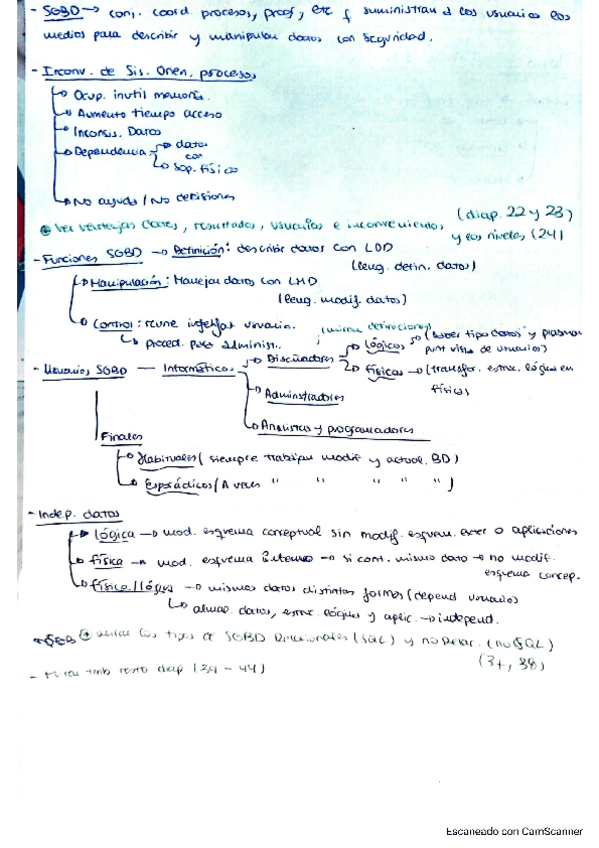 - SGBD → conj. coord. procesos, proof, etc q suministran a los usuarios los
medios para describir y manipular datos con seguridad.
- Inconv. de Sis. Orien. procesos
→ Ocup. inutil memoria.
→ Aumento tiempo acceso
→ Inconsis. Datos
→ Dependencia → datos
con
→ Sop. físico
→ No ayuda / No decisiones
Ver ventajas datos, resultados, usuarios e inconveniento, (diap. 22 y 23)
y los niveles (24)
- Funciones SGBD → Definición: describir datos con LDD
(leng. defin. datos)
→ Manipulación: Manejar datos con LMD
(leng. modif datos)
→ Control: reune interfaz usuario. (mirar definiciones)
↳ proced. para administ.
- Usuarios SGBD — Informáticos → Diseñadores → lógicos → (saber tipo datos y plasmar
punt vista de usuarios)
→ físicos → (transfor. estruc. lógica en
físicos
→ Administradores
→ Analistas y programadores
Finales
→ Habituales (siempre trabajan modif y actual. BD)
→ Esporádicos (A veces " " " " ")
- Indep. datos
→ lógica → mod. esquema conceptual sin modif. esquem. exter o aplicaciones
→ física → mod. esquema interno → si cont. mismo dato → no modif.
esquema concep.
→ físico/lógica → mismos datos distintas formas (depend usuarios)
↳ almac. datos, estruc. lógicas y aplic. → independ.
los tipos de SGBD Relacionales (SQL) y no Relac. (noSQL)
(37, 38)
- Mirar tmb resto diap (39 - 44)
Escaneado con CamScanner